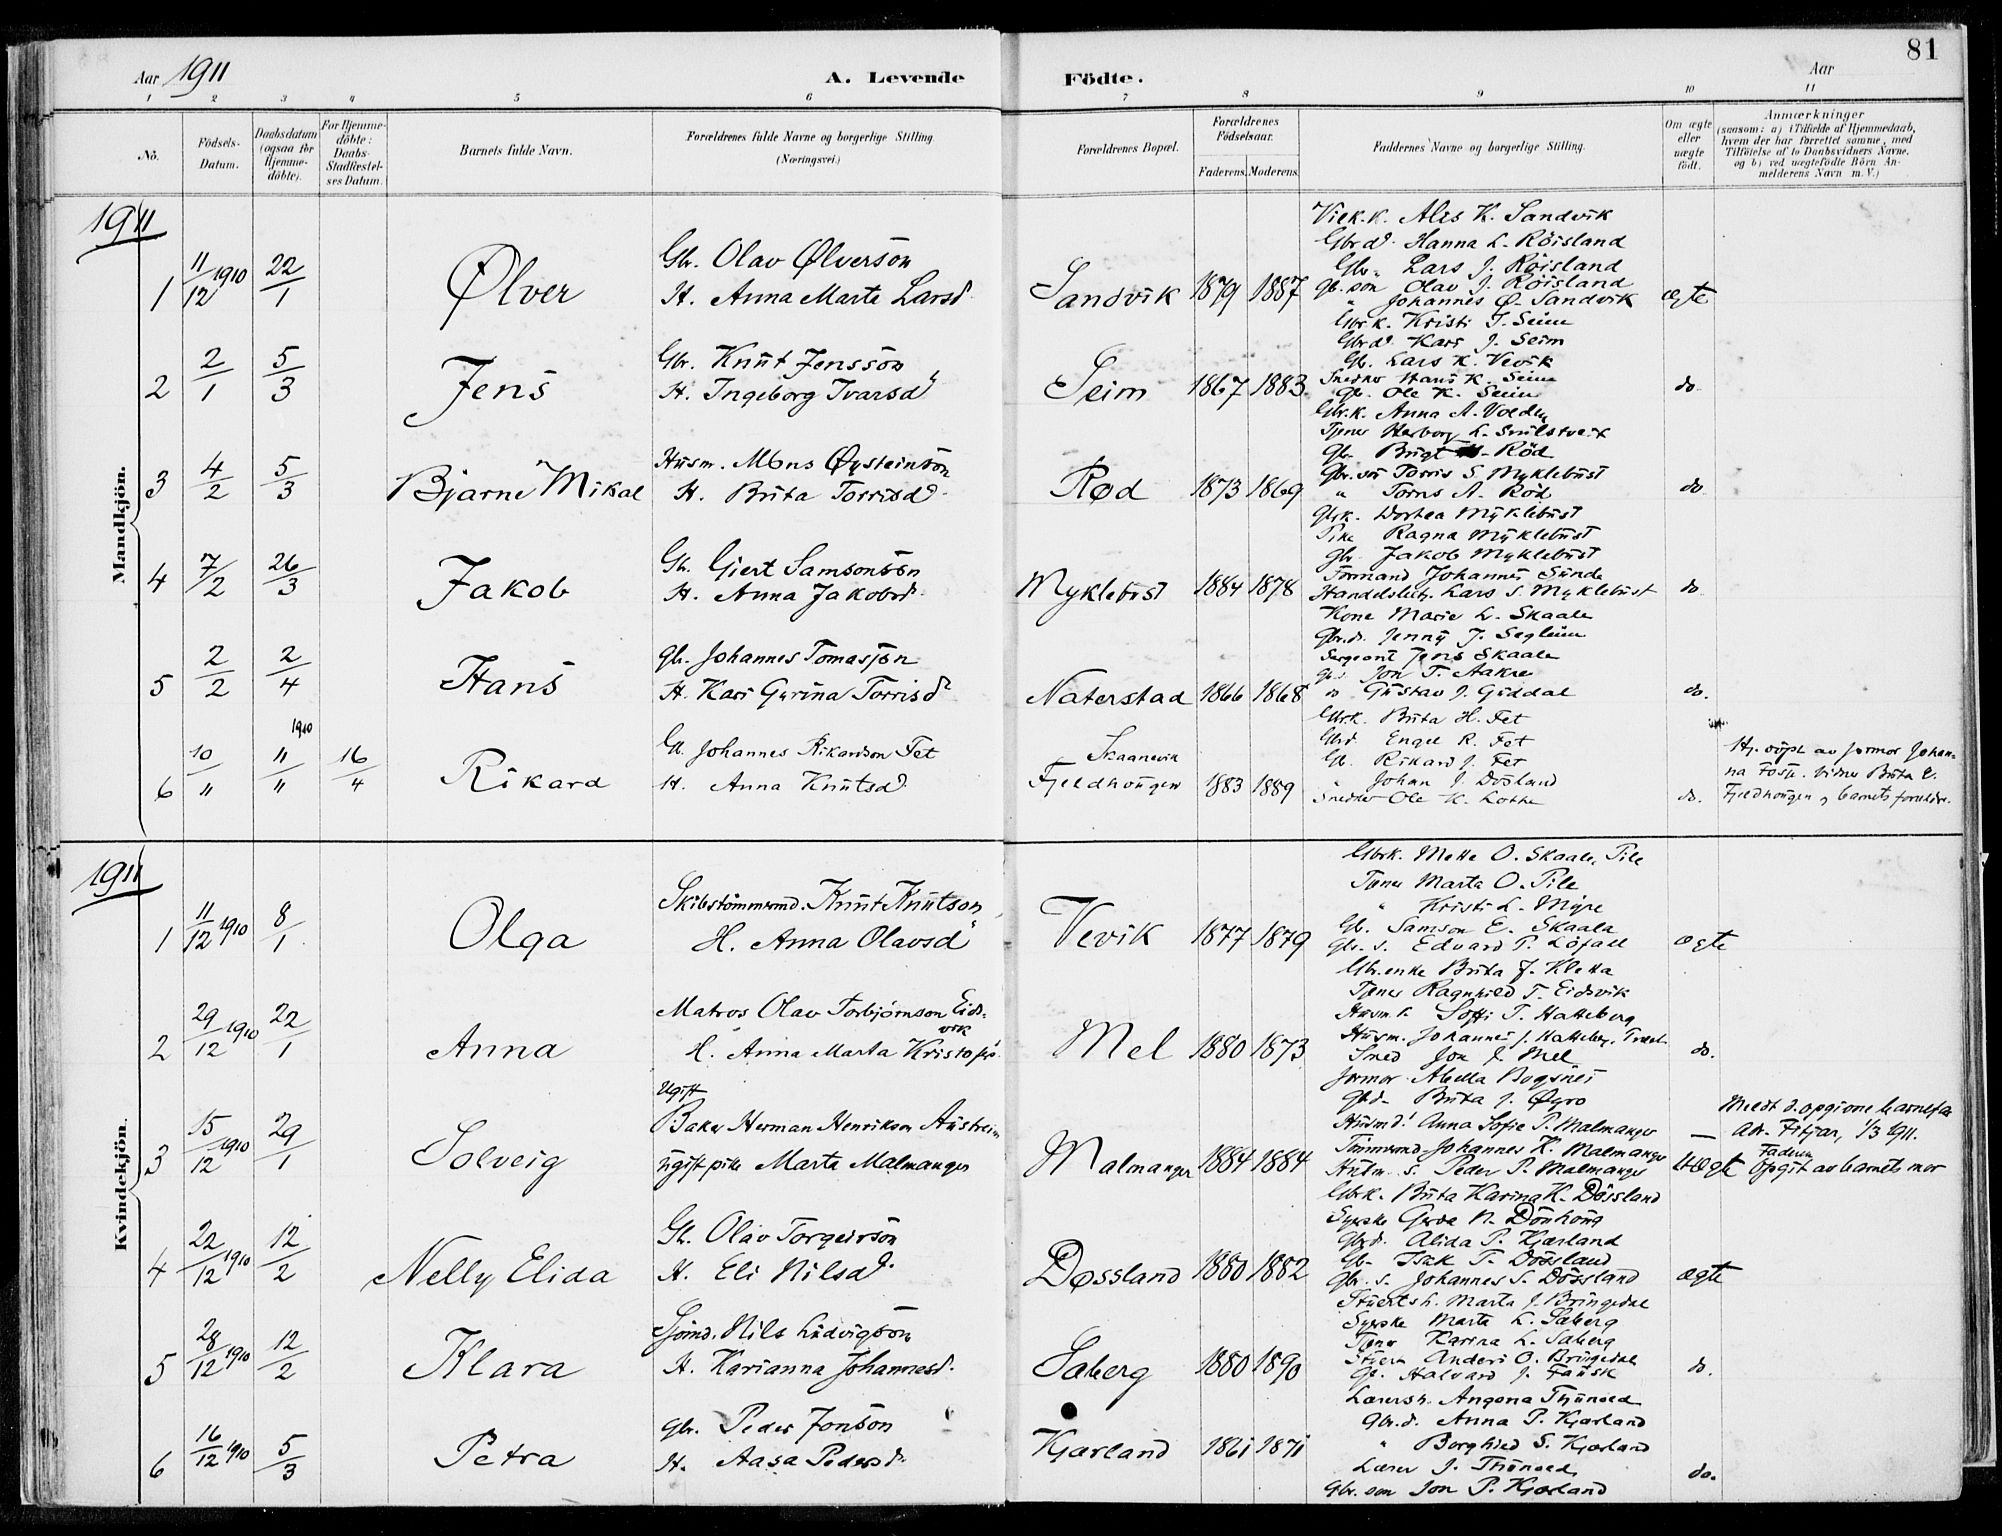 81
Aar 1911
A. Levende Födte.
Aar
1 2 3 4 5 6 7 8 9 10 11
No.
Födsels-Datum.
Daabsdatum (ogsaa for Hjemme-döbte).
For Hjemme-döbte: Daabs-Stadfæstel-ses Datum.
Barnets fulde Navn.
Forældrenes fulde Navne og borgerlige Stilling. (Næringsvei.)
Forældrenes Bopæl.
Forældrenes Födselsaar.
Faderens. Moderens.
Faddernes Navne og borgerlige Stilling.
Om ægte eller uægte födt.
Anmærkninger
(saasom: a) i Tilfælde af Hjemmedaab,
hvem der har forrettet samme, med
Tilföielse af to Daabsvidners Navne.
og b) ved uægtefödte Börn An-
melderens Navn m. V.)
1911
Mandkjön.
1 11/12 1910 22/1 Ølver
Gbr. Olav Ølverson
H. Anna Marta Larsd.
Sandvik 1879 1887
K. Sandvik
Gbrd. Hanna L. Röisland
Gbr. Lars J. Röisland
Gb. son Olav J. Röisland
" Johannes Ø. Sandvik
ægte
2 2/1 5/3 Jens
Gbr. Knut Jensson
H. Ingeborg Ivarsd.
Seim 1867 1883
Gbr.k. Kristi J. Seim
Gbrd. Kari J. Seim
Gb. Lars K. Vevik
Snedker Hans K. Seim
Gb. Ole K. Seim
do
3 4/2 5/3 Bjarne Mikal
Husm. Mons Øysteinson
H. Brita Torrisd.
Rød 1873 1869
Gbr.k. Anna A. Volden
Tjener Herborg L.
Gbr. Röd
Gbr. sön Torris S. Myklebust
" Torris A. Röd
do
4 7/2 26/3 Jakob
Gb. Giert Samsonson
H. Anna Jakobsd.
Myklebust 1884 1878
Gbrk. Dortea Myklebust
Pike Ragna Myklebust
Gbr. Jakob Myklebust
Formand Johannes Sunde
Lars S. Myklebust
do
5 2/2 2/4 Hans
Gb. Johannes Tomasson
H. Kari Gurina Torrisd.
Naterstad 1866 1868
Kone Marie L. Skaale
Gbr.d. Jenny J.
Sergeant Jens Skaale
Jon T. Aakre
do Gustav J. Guddal
do.
6 10/" 1910 11/" 16/4 Rikard
Gb. Johannes Rikardson Fet
H. Anna Knutsd.
Skaanevik
Fjeldhougen 1883 1889
Gbrk. Brita H. Fet
Gbrd. Engel R. Fet
Gb. Rikard J. Fet
" Johan J. Døsland
Snedker Ole K. Lothe
do.
Hj. døpt av formor Johan-
na
Fjeldhougen og barnets forældre.
1911
Kvindekjön.
1 11/12 1910 8/1 Olga
Skibstömmermd. Knut Knutson
H. Anna Olavsd.
Vevik 1877 1879
Gbrk. Mette O. Skaale, Pile
Tjener Marta O. Pile
" Kristi L. Myre
Gb. Samson E. Skaala
Gbr. s. Edvard P. Løfall
ægte
2 29/12 1910 22/1 Anna
Matros Olav Torbjørnson Eids-
vik
H. Anna Marta
Mel 1880 1873
Gbr. enke Brita J. Kletta
Tjener Ragnhild T. Eidsvik
Husm.k. Soffi T. Hatteberg
Husm. Johannes J. Hatteberg,
Sned Jon J. Mel
do.
3 15/12 1910 29/1 Solveig
Ugift
Baker Herman Henrikson Austreim
ugift pike Marta Malmanger
Malmanger 1884 1884
formor Abella Bogsnes
Gbd. Brita J. Øyro
Husmd. Anna Sofie P. Malmanger
Tömmermd. Johannes K. Malmanger
Husm. s. Peder P. Malmanger
— uægte
Meldt d. opgivne barnefar
adr. Fitjar, 1/3 1911.
Faderen
opgit av barnets mor
4 22/12 1910 12/2 Nelly Elida
Gb. Olav Torgeirson
H. Eli Nilsd.
Døssland 1880 1882
Gbrk. Brita Karina K. Døssland
Syerske Gerda N. Dönhoug
Gbrd. Alida P. Kjærland
Gb. Isak T. Døssland
Gbr. s. Johannes S. Døssland
ægte
5 28/12 1910 12/2 Klara
Sjömd. Nils Ludvigson
H. Karianna Johannesd.
Saberg 1880 1890
Marta J. Bringedal
Syerske Marta L. Saberg
Tjener Karina L. Saberg
Anders O. Bringedal
Gb. Halvard J. Fausk
do.
6 16/12 1910 5/3 Petra
Gbr. Peder Jonson
H. Aasa Pedersd.
Kjærland 1861 1871
Lærersk. Angona
Gbr.d. Anna P. Kjærland
" Borghild S. Kjærland
Lærer J.
Gbr. son Jon P. Kjærland
do.